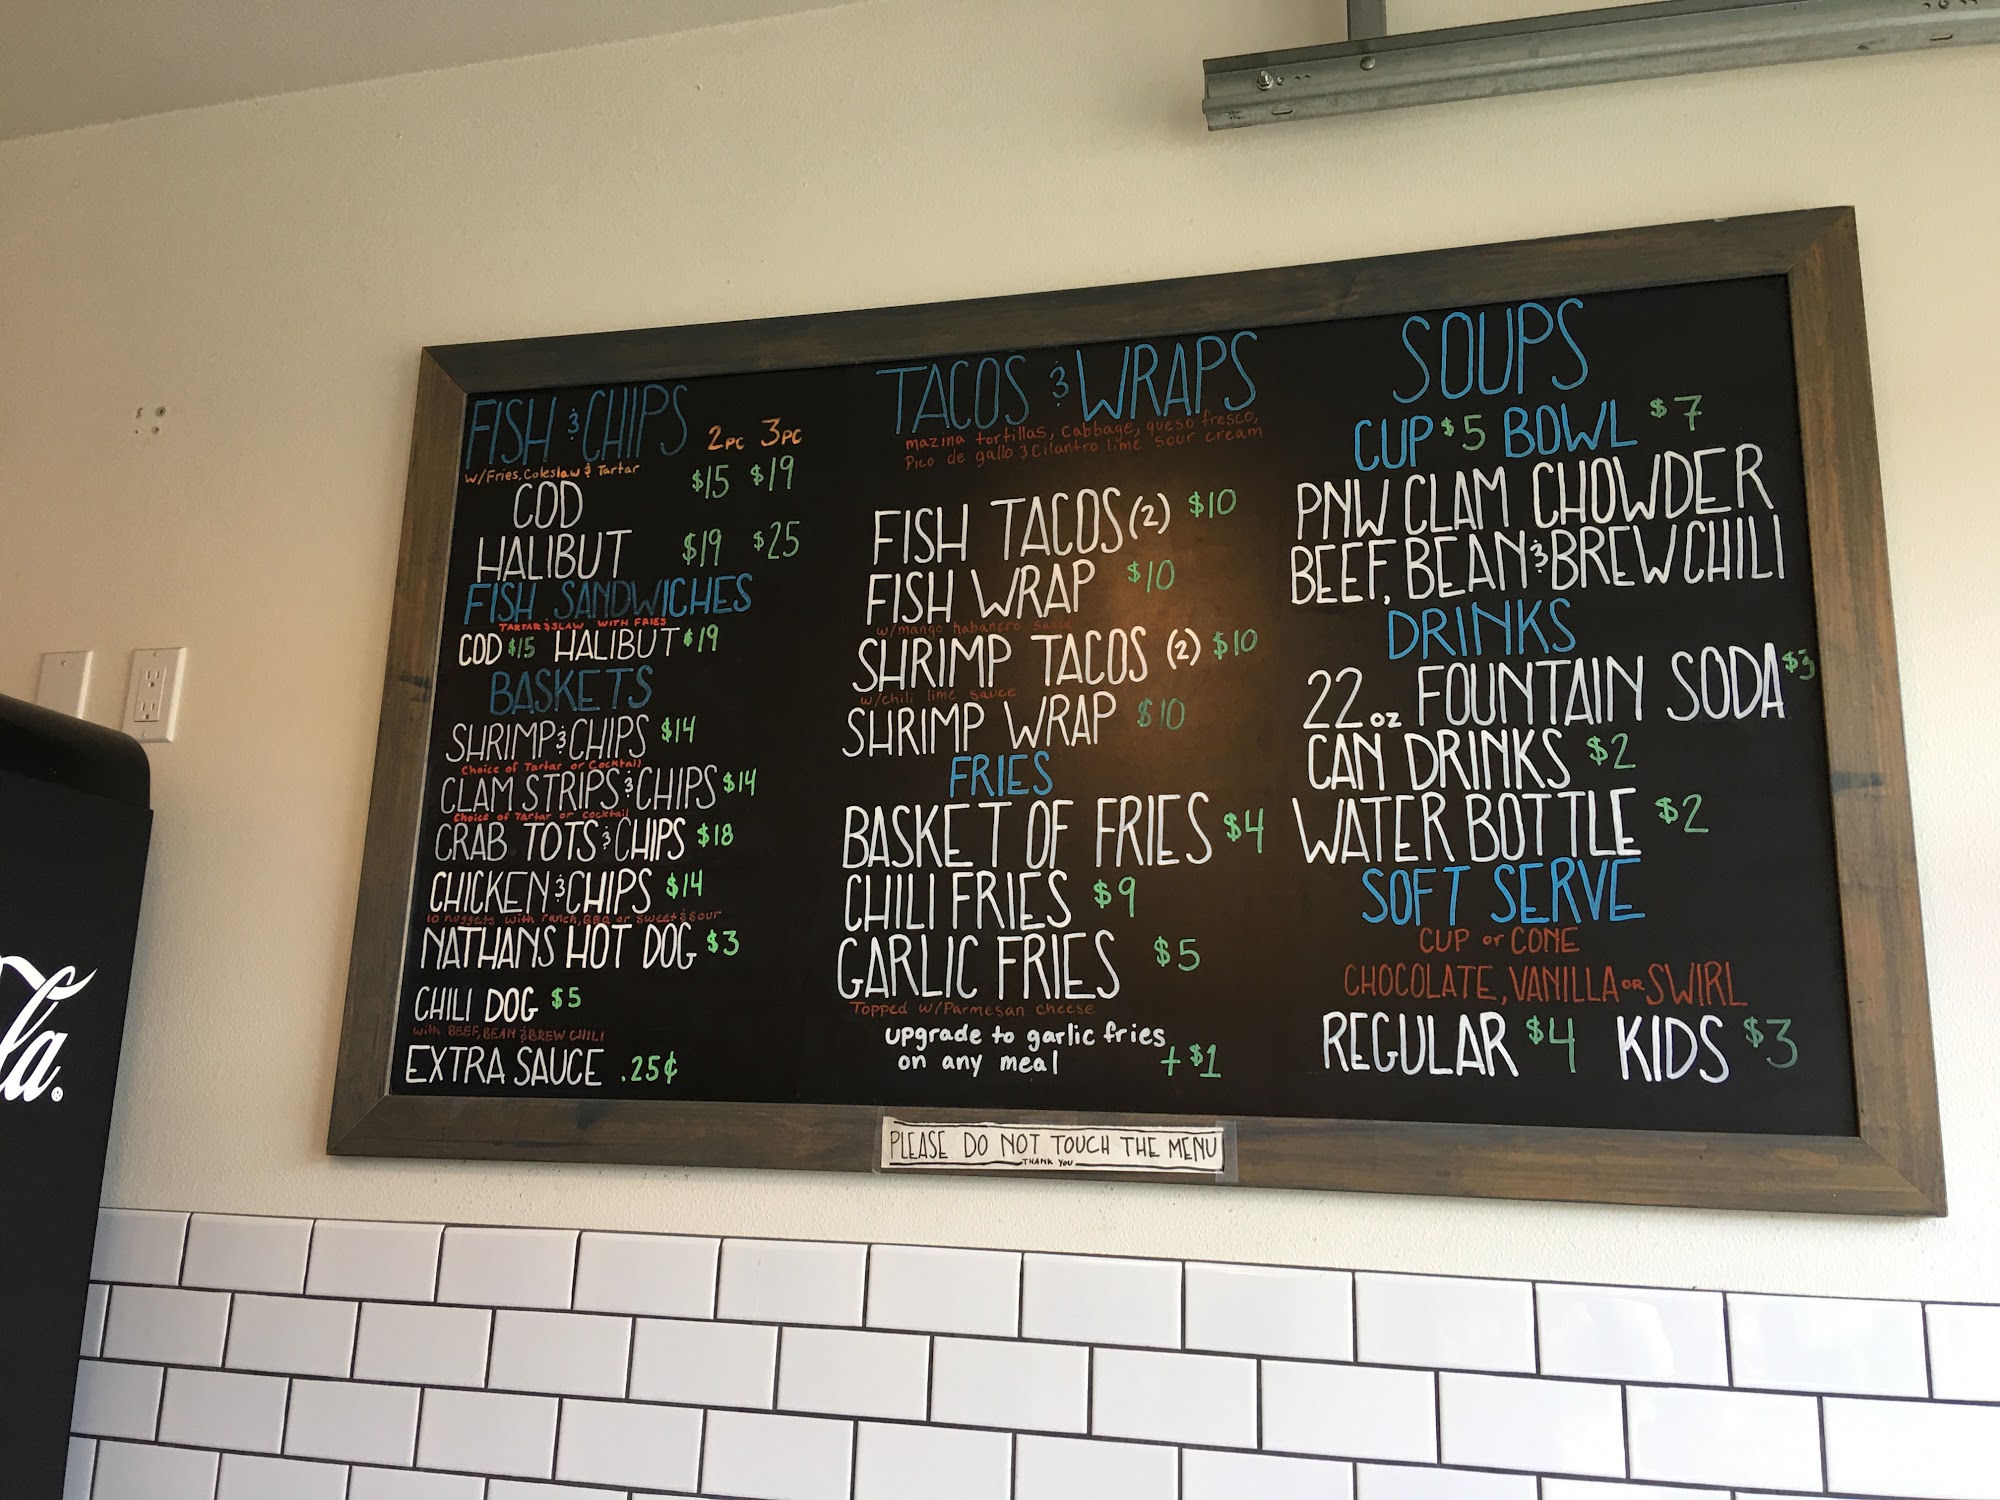 FISH & CHIPS
2PC 3PC
w/Fries, Coleslaw & Tartar
COD $15 $19
HALIBUT $19 $25
FISH SANDWICHES
TARTAR & SLAW WITH FRIES
COD $15 HALIBUT $19
BASKETS
SHRIMP & CHIPS $14
Choice of Tartar or Cocktail
CLAM STRIPS & CHIPS $14
Choice of Tartar or Cocktail
CRAB TOTS & CHIPS $18
CHICKEN & CHIPS $14
10 nuggets with ranch, BBQ or sweet & sour
NATHANS HOT DOG $3
CHILI DOG $5
with BEEF, BEAN & BREW CHILI
EXTRA SAUCE .25¢
TACOS & WRAPS
mazina tortillas, cabbage, queso fresco,
Pico de gallo & Cilantro lime sour cream
FISH TACOS (2) $10
FISH WRAP $10
w/mango habanero sauce
SHRIMP TACOS (2) $10
w/chili lime sauce
SHRIMP WRAP $10
FRIES
BASKET OF FRIES $4
CHILI FRIES $9
GARLIC FRIES $5
Topped w/Parmesan cheese
upgrade to garlic fries
on any meal +$1
SOUPS
CUP $5 BOWL $7
PNW CLAM CHOWDER
BEEF, BEAN & BREW CHILI
DRINKS
22oz FOUNTAIN SODA $3
CAN DRINKS $2
WATER BOTTLE $2
SOFT SERVE
CUP or CONE
CHOCOLATE, VANILLA OR SWIRL
REGULAR $4 KIDS $3
PLEASE DO NOT TOUCH THE MENU
THANK YOU
la.